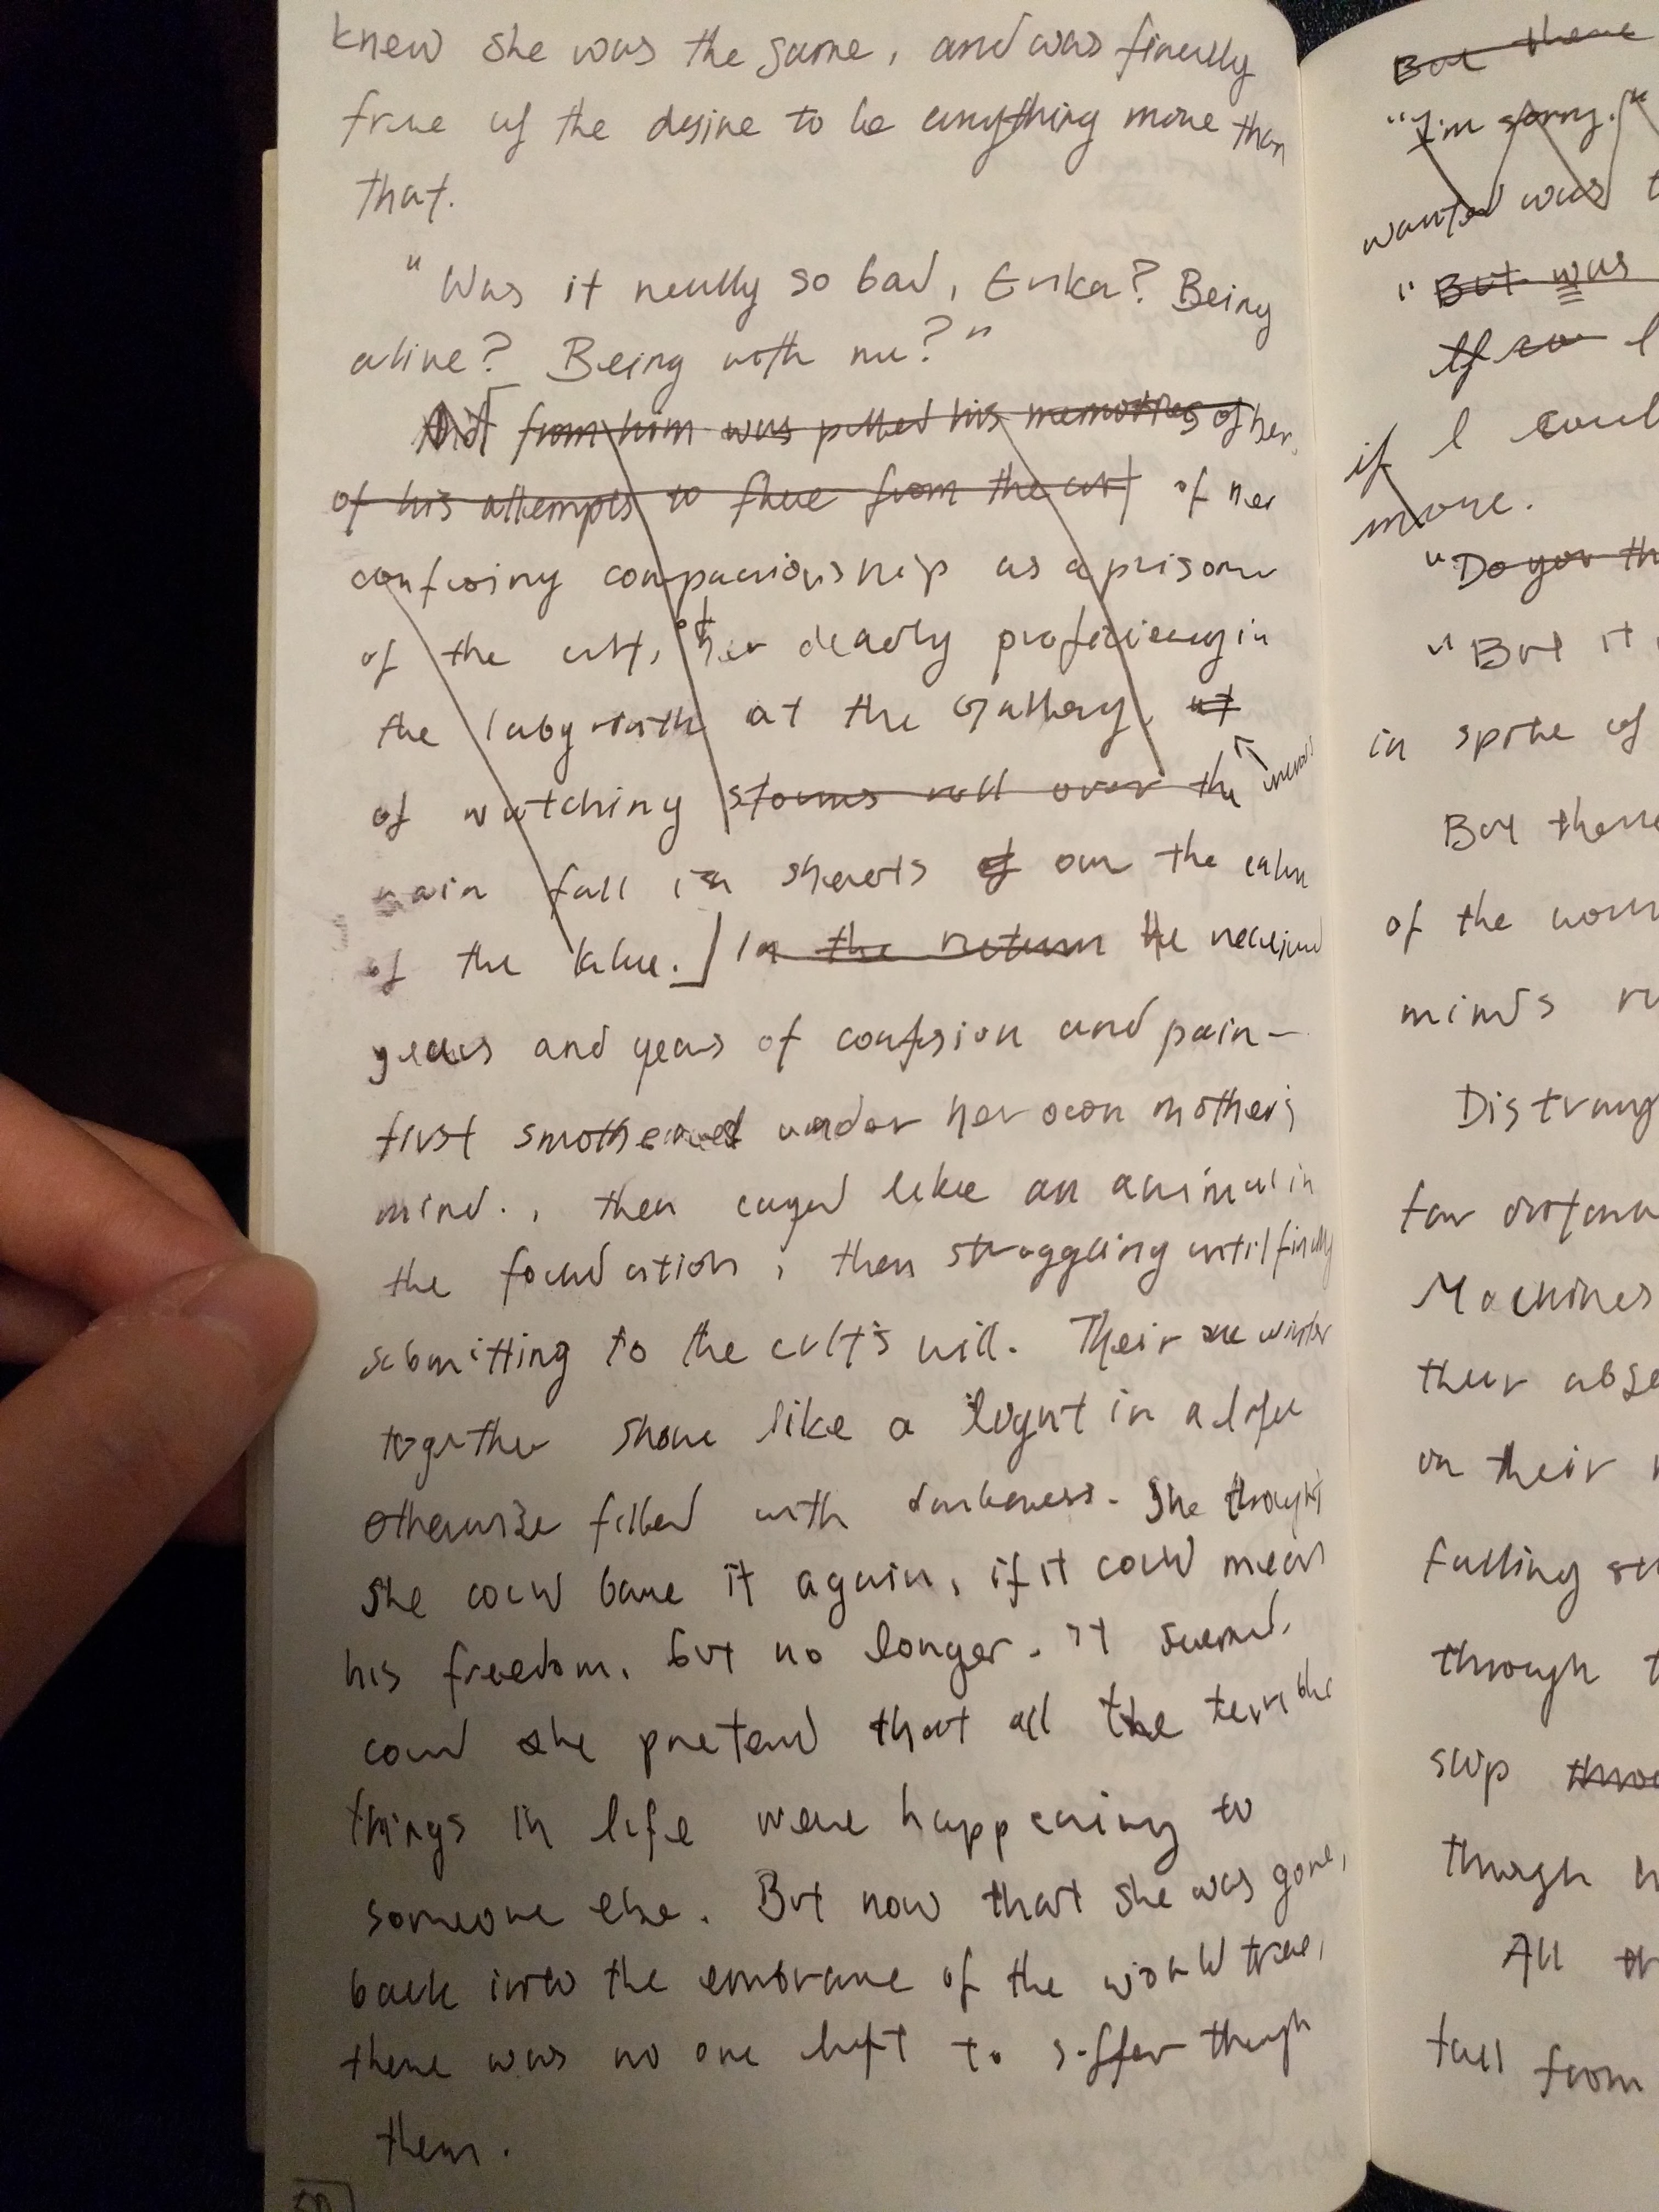 knew she was the same, and was finally
free of the desire to be anything more than
that.
"Was it really so bad, Erika? Being
alive? Being with me?"
from him was pulled his memories of her,
of his attempts to flee from the cult of her
confusing companionship as a prisoner
of the cult, of her deadly proficiency in
the labyrinth at the Gallery, at
of watching storms roll over the
rain fall in sheets of over the calm
of the lake.] In the return He received
years and years of confusion and pain—
first smothered under her own mother's
mind., then caged like an animal in
the foundation, then struggling until finally
submitting to the cult's will. Their one winter
together shone like a light in a life
otherwise filled with darkness. She thought
she could bare it again, if it could mean
his freedom. but no longer. it seemed,
could she pretend that all the terrible
things in life were happening to
someone else. But now that she was gone,
back into the embrace of the world tree,
there was no one left to suffer though
them.
50
But there
"I'm sorry."
wanted was
"But was
If so I
if I
more.
"Do you
"But it
in spite of
But there
of the
minds
far
Machines
their
on their
falling
through
slip
though
All
fall from